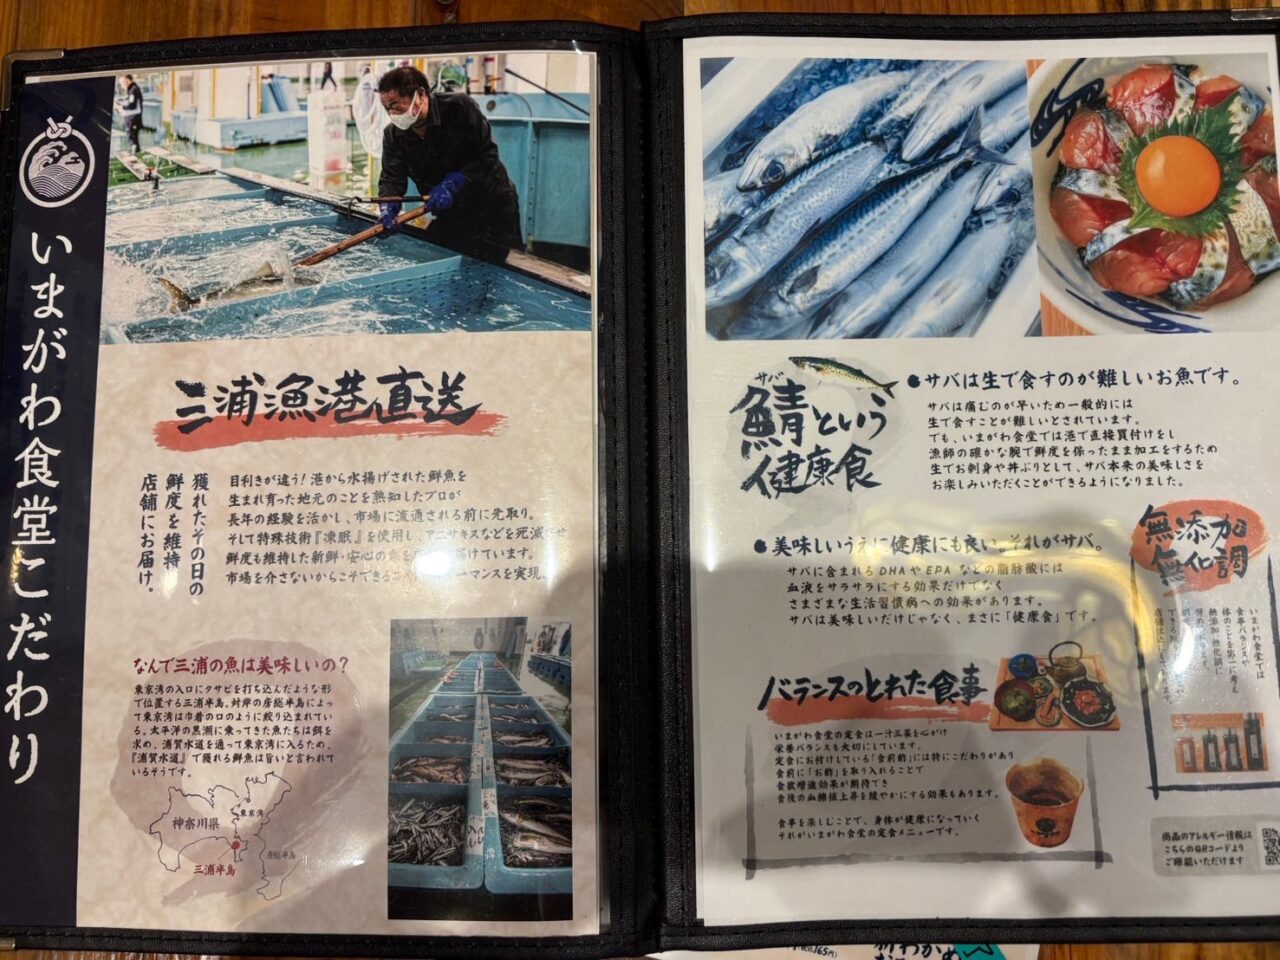 いまがわ食堂こだわり
三浦漁港直送
獲れたその日の
鮮度を維持
店舗にお届け。
目利きが違う!港から水揚げされた鮮魚を
生まれ育った地元のことを熟知したプロが
長年の経験を活かし、市場に流通される前に先取り。
そして特殊技術『凍眠』を使用し、アニサキスなどを死滅させ
鮮度も維持した新鮮・安心の魚を
届けています。
市場を介さないからこそできる
ーマンスを実現。
なんで三浦の魚は美味しいの?
東京湾の入口にクサビを打ち込んだような形
で位置する三浦半島。対岸の房総半島によっ
て東京湾は巾着の口のように絞り込まれてい
る。太平洋の黒潮に乗ってきた魚たちは餌を
求め、浦賀水道を通って東京湾に入るため、
『浦賀水道』で獲れる鮮魚は旨いと言われて
いるそうです。
神奈川県
東京湾
三浦半島
房総半島
サバ
鯖という
健康食
●サバは生で食すのが難しいお魚です。
サバは痛むのが早いため一般的には
生で食すことが難しいとされています。
でも、いまがわ食堂では港で直接買付けをし
漁師の確かな腕で鮮度を保ったまま加工をするため
生でお刺身や丼ぶりとして、サバ本来の美味しさを
お楽しみいただくことができるようになりました。
●美味しいうえに健康にも良い。それがサバ。
サバに含まれるDHAやEPAなどの脂肪酸には
血液をサラサラにする効果だけでなく
さまざまな生活習慣病への効果があります。
サバは美味しいだけじゃなく、まさに「健康食」です。
無添加
無化調
いまがわ食堂では
食事バランスや
体のことを第一に考え
無添加無化調に
バランスのとれた食事
いまがわ食堂の定食は一汁三菜を心がけ
栄養バランスも大切にしています。
定食にお付けしている「食前酢」には特にこだわりがあり
食前に「お酢」を取り入れることで
食欲増進効果が期待でき
食後の血糖値上昇を緩やかにする効果もあります。
食事を楽しむことで、身体が健康になっていく
それがいまがわ食堂の定食メニューです。
商品のアレルギー情報は
こちらのQRコードより
ご確認いただけます
165円)
わかめ